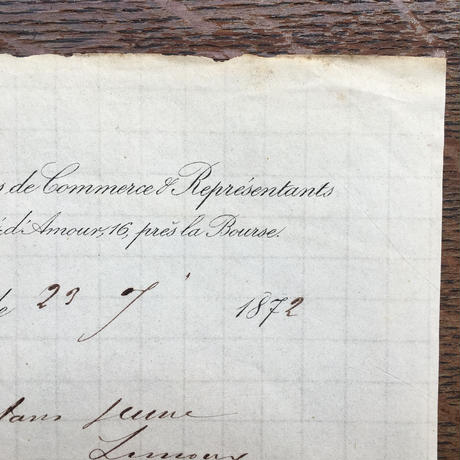 s de Commerce & Représentants
d'Amour, 16, près la Bourse.
le 23 1872
jeune
Limoux